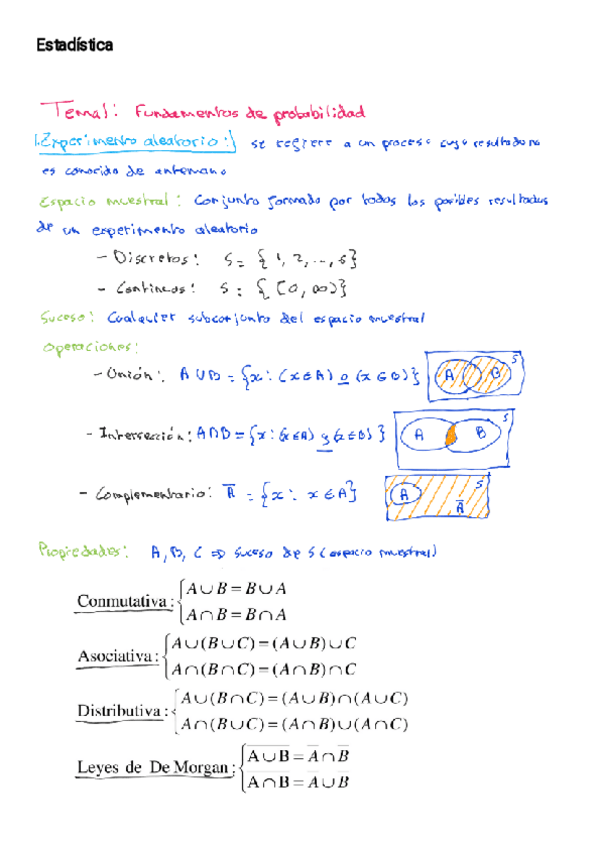 Estadística
Tema1: Fundamentos de probabilidad
1. Experimento aleatorio: se refiere a un proceso cuyo resultado no
es conocido de antemano
Espacio muestral: Conjunto formado por todos los posibles resultados
de un experimento aleatorio
- Discretos: S = {1, 2, ..., 6}
- Continuos: S = {[0, ∞)}
Suceso: Cualquier subconjunto del espacio muestral
Operaciones:
- Unión: A ∪ B = {x : (x ∈ A) o (x ∈ B)} A B S
- Intersección: A ∩ B = {x : (x ∈ A) y (x ∈ B)} A B S
- Complementario: A̅ = {x : x ∈ A} A A̅ S
Propiedades: A, B, C ⇒ suceso de S (espacio muestral)
Conmutativa: { A ∪ B = B ∪ A
A ∩ B = B ∩ A
Asociativa: { A ∪ (B ∪ C) = (A ∪ B) ∪ C
A ∩ (B ∩ C) = (A ∩ B) ∩ C
Distributiva: { A ∪ (B ∩ C) = (A ∪ B) ∩ (A ∪ C)
A ∩ (B ∪ C) = (A ∩ B) ∪ (A ∩ C)
Leyes de De Morgan: { A̅ ∪̅ B̅ = A̅ ∩ B̅
A̅ ∩̅ B̅ = A̅ ∪ B̅